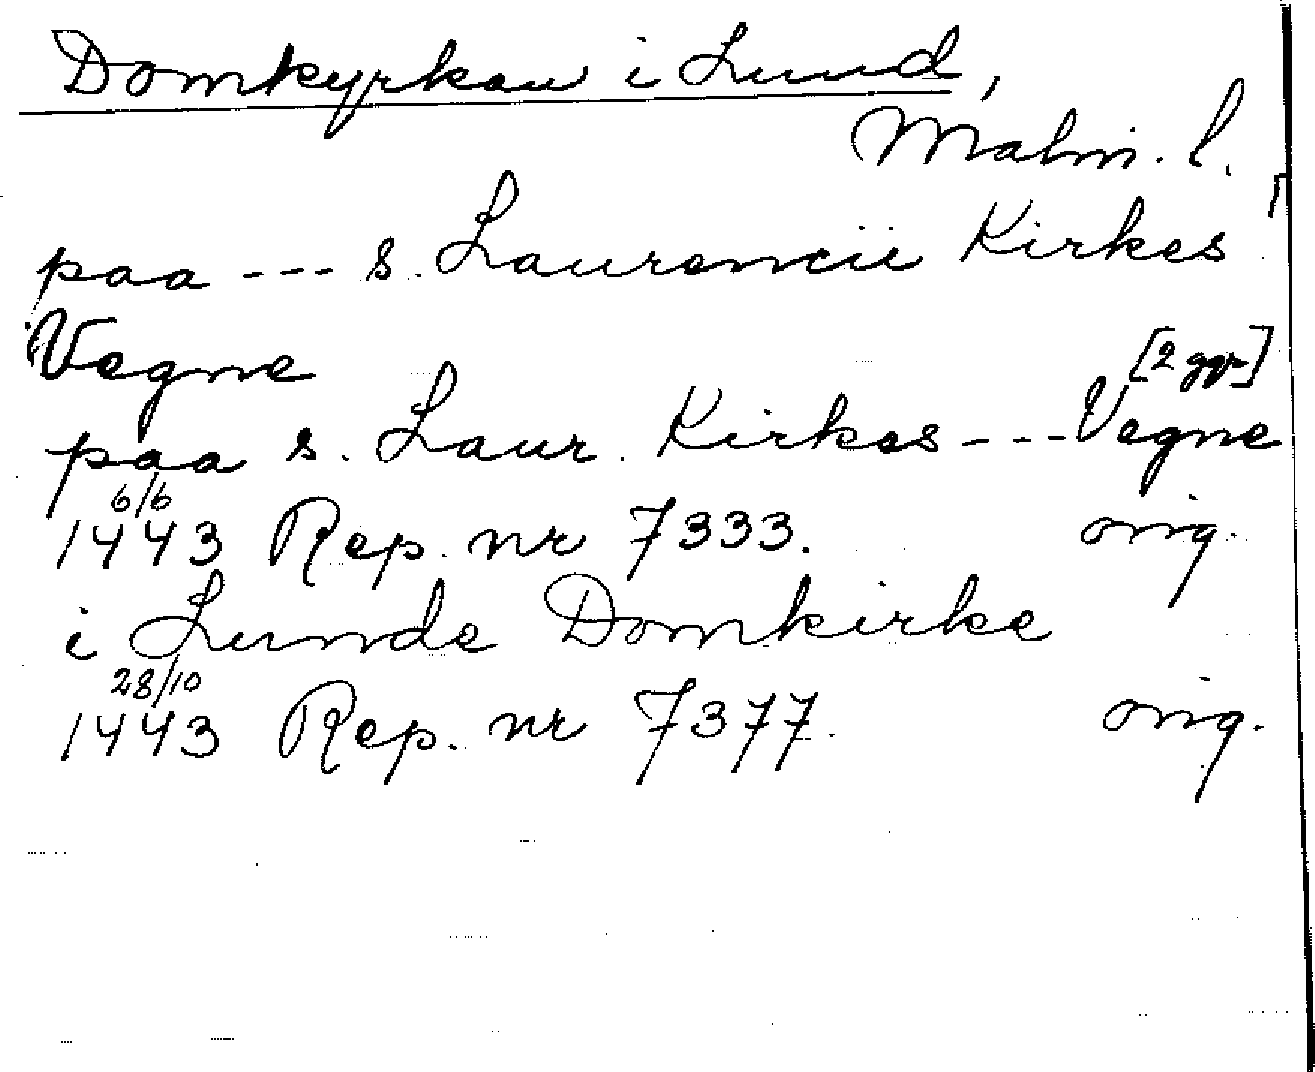 Domkyrkan i Lund,
Malm. l.
paa --- s. Laurencii Kirkes
Vegne
[2 ggr]
paa s. Laur. Kirkes --- Vegne
6/6
1443 Rep. nr 7333. orig.
i Lunde Domkirke
28/10
1443 Rep. nr 7377. orig.